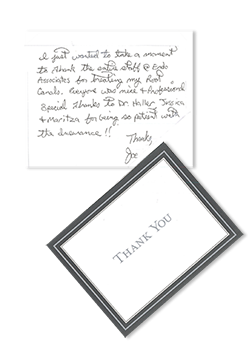 I just wanted to take a moment
to thank the entire staff @ Endo
Associates for treating my Root
Canals. Everyone was nice & Professional
Special thanks to Dr. Haller, Jessica
& Maritza for being so patient with
the Insurance!!
Thanks,
Joe
THANK YOU